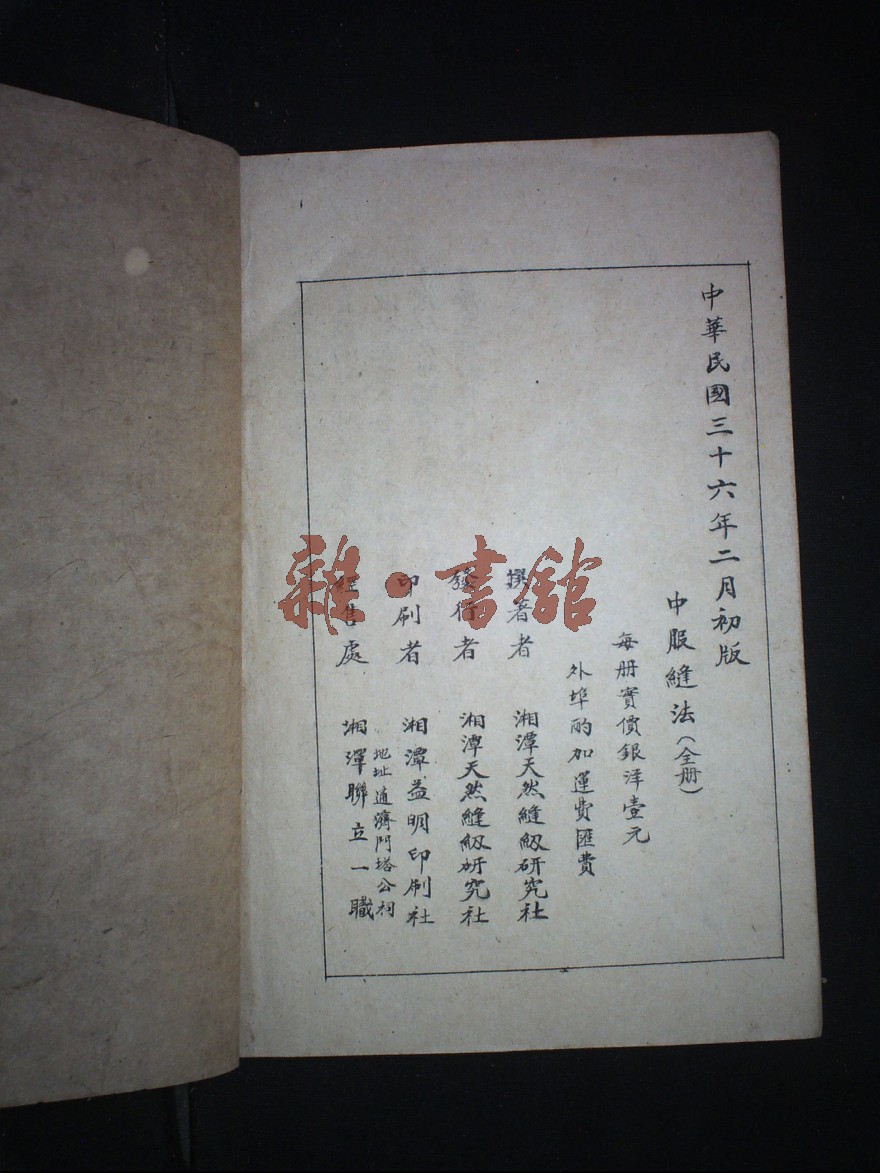 中華民國三十六年二月初版
中服縫法（全册）
每册實價銀洋壹元
外埠酌加運費匯費
撰著者 湘潭天然縫級研究社
發行者 湘潭天然縫級研究社
印刷者 湘潭益明印刷社
地址通濟門塔公祠
經售處 湘潭聯立一職
雜·書館